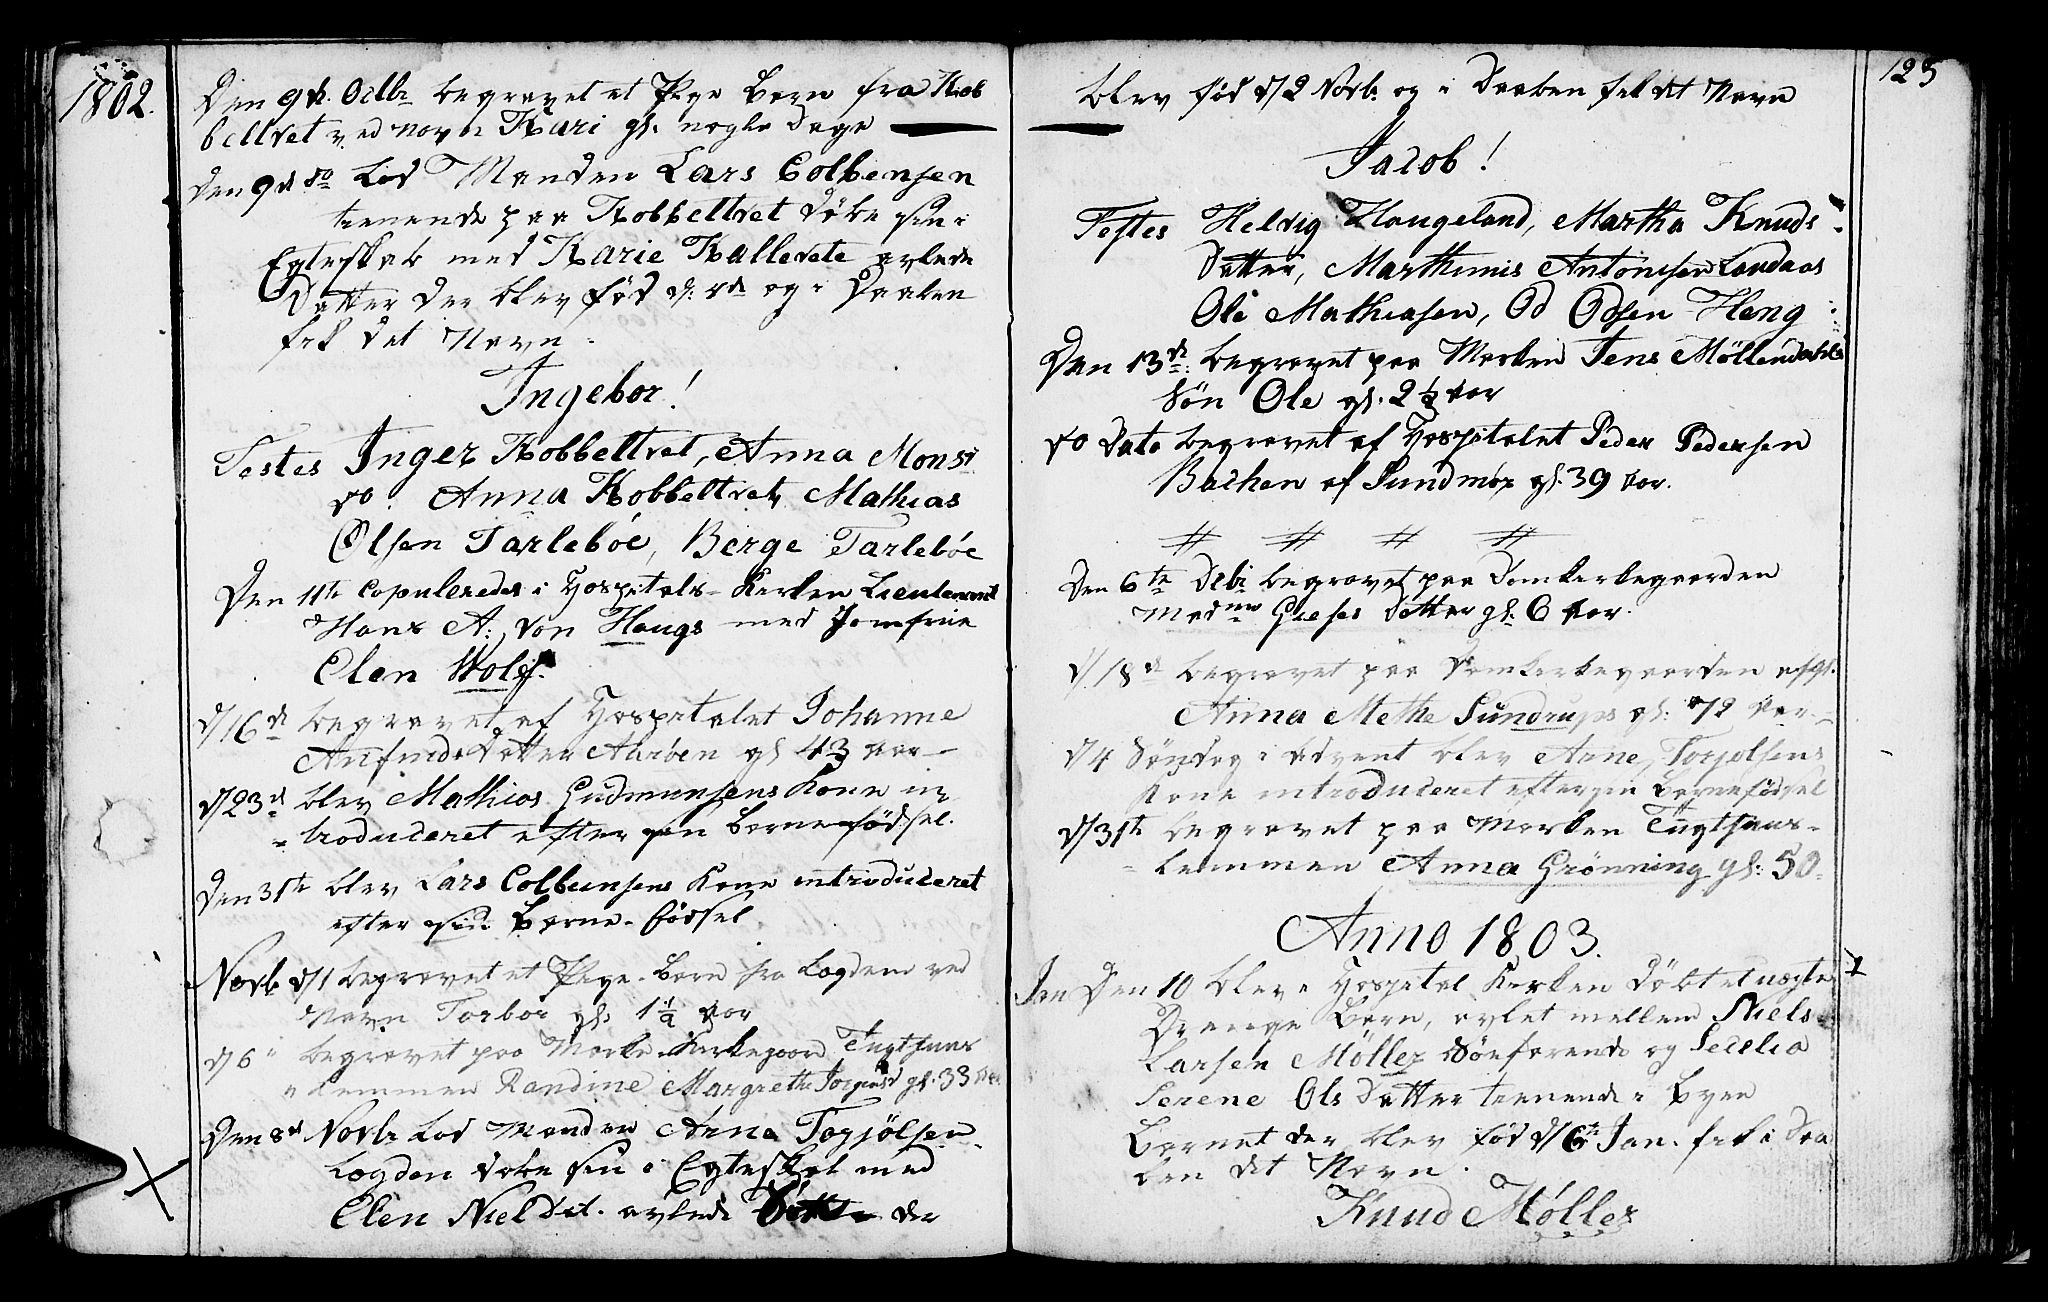 1802.
Den 9d. Octbr begravet et Pige Barn fra Kob
beltvet ved navn Kari gl. nogle Dage
den 9d do Lod Manden Lars Colbensen
tienende paa Kobbeltvet döbe sin i
Egteskab med Karie Kallevete avlede
Datter der blev fød d: 4de og i Daaben
fik det Navn.
Ingebor!
Testes Inger Kobbeltvet, Anna Monsd
do. Anna Kobbeltvet, Mathias
Olsen Tarleböe, Berge Tarleböe
Den 11te Copuleredes i Hospitals-Kirken Lieutenant
Hans A: von Haugs med Jomfrue
Elen Wolf.
d/16de begravet af Hospitalet Johanne
Anfinds Datter gl 43 aar
d/23d blev Mathias Gudmunsens Kone in
troduceret efter sin barnefödsel.
Den 31te blev Lars Colbensens Kone introduceret
efter sin Barne-födsel
Novbr d/1 begravet et Pige-Barn fra Lagden ved
Navn Torbor gl. 1 1/2 Aar
d/6 begravet paa Marke-Kirkegaard Tugthuus
Lemmen Randine Margrethe Jörgensd gl. 33 Aar.
Den 8d Novbr Lod Manden Arne Torjölsen
Lagden döbe sin i Egteskab med
Elen Nielsdat. avlede der
125
blev fød d/2 Novbr og i Daaben fik det Navn
Jacob!
Testes Helvig Haugeland, Martha Knuds
Datter, Marthinus Antonisen Landaas
Ole Mathiasen, Od Odsen Heng
Den 13de begravet paa Marken Jens Möllendahls
Sön Ole gl. 2 1/2 Aar
do Dato begravet af Hospitalet Peder Pedersen
Bachen af Sundmör gl. 39 Aar.
# # # #
Den 6te Decbr begravet paa Domkirkegaarden
Madme Gieses Datter gl. 6 Aar.
d/18de begravet paa Domkirkegaarden
Anna Methe Sundrups gl: 72 Aar.
d/4 Söndag i Advent blev Arne Torjolsens
Kone introduceret efter sin Barnefödsel
d/31te begravet paa Marken Tugthuus-
Lemmen Anna Grönning gl: 50.
Anno 1803.
Jan Den 10 blev i Hospital Kirken Döbt et uægte 1
Drenge Barn, avlet mellem Niels
Larsen Möller Söefarende og Secelia
Serene Ols Datter tienende i Byen
Barnet der blev fød d/6te Jan. fik i Daa
ben det Navn.
Knud Möller